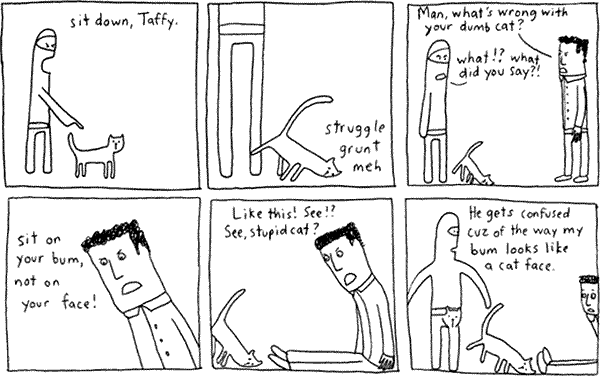 sit down, Taffy.
struggle
grunt
meh
Man, what's wrong with
your dumb cat?
what!? what
did you say?!
sit on
your bum,
not on
your face!
Like this! See!?
See, stupid cat?
He gets confused
cuz of the way my
bum looks like
a cat face.